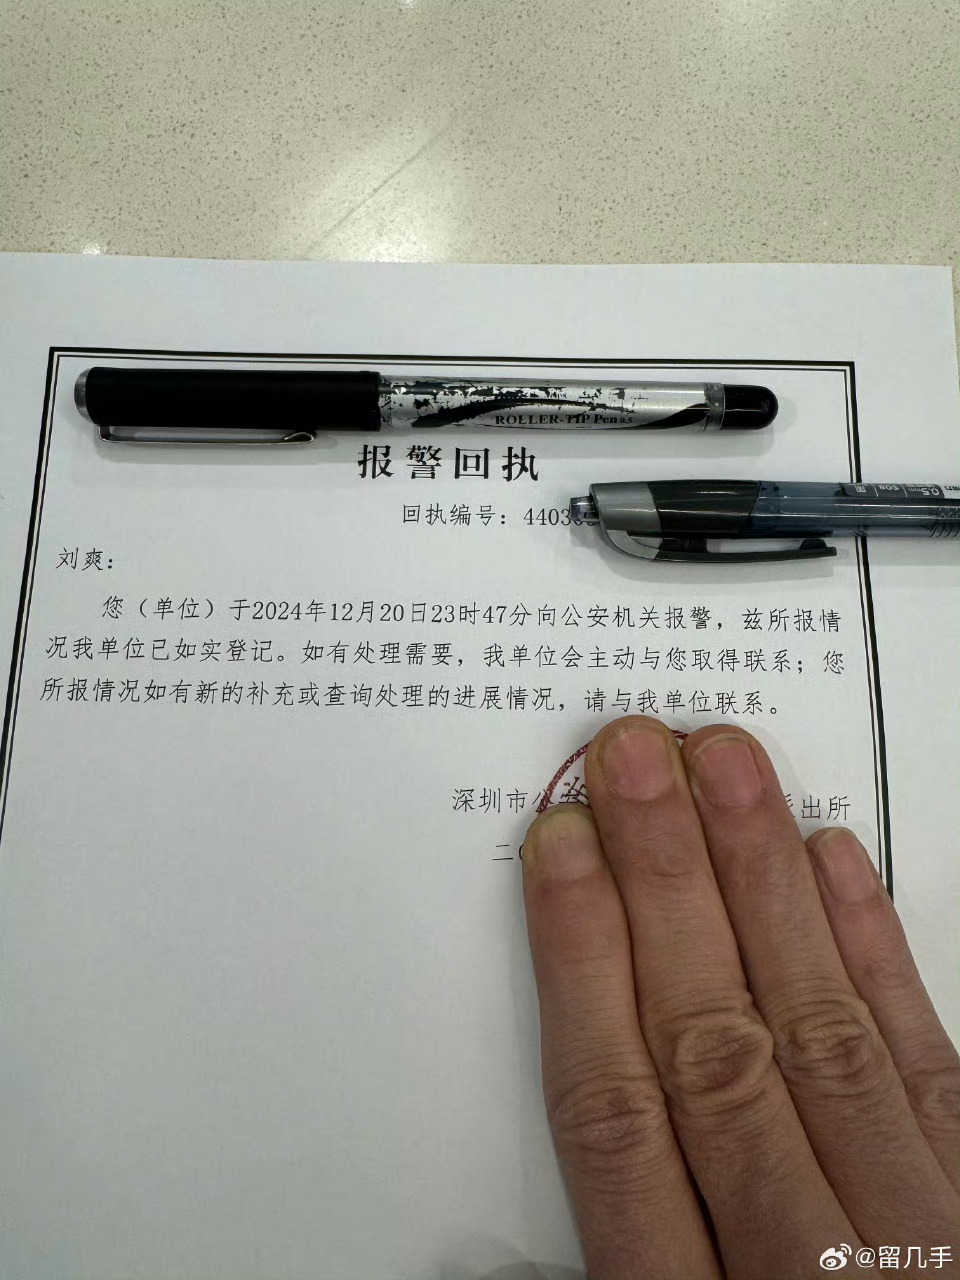 ROLLER-TIP Pen 0.5
报警回执
回执编号：4403
刘爽：
您（单位）于2024年12月20日23时47分向公安机关报警，兹所报情
况我单位已如实登记。如有处理需要，我单位会主动与您取得联系；您
所报情况如有新的补充或查询处理的进展情况，请与我单位联系。
深圳市公 出所
二
0.5
@留几手